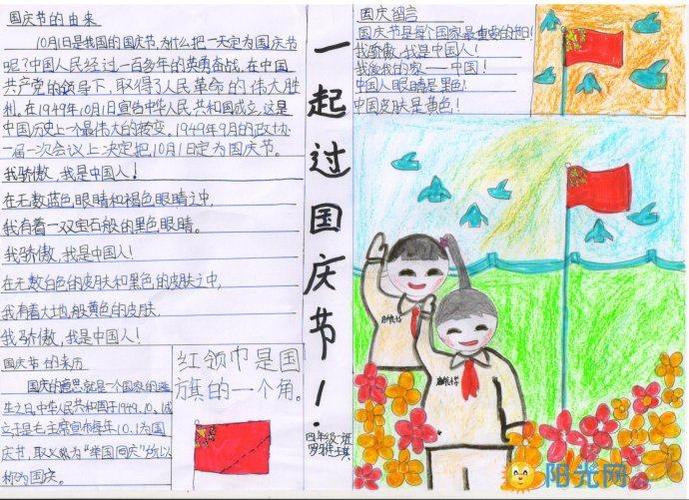 国庆节的由来
10月1日是我国的国庆节,为什么把一天定为国庆节
呢?中国人民经过一百多年的英勇奋战,在中国
共产党的领导下,取得了人民革命的伟大胜
利。在1949年10月1日宣告中华人民共和国成立,这是
中国历史上一个最伟大的转变。1949年9月的政协
一届一次会议上决定把10月1日定为国庆节。
我骄傲,我是中国人!
在无数蓝色眼睛和褐色眼睛之中,
我有着一双宝石般的黑色眼睛。
我骄傲,我是中国人!
在无数白色的皮肤和黑色的皮肤之中,
我有着大地般黄色的皮肤,
我骄傲,我是中国人!
国庆节的来历
国庆的意思就是一个国家的诞
生之日,中华人民共和国于1949.10.1成
立于是毛主席宣布每年10.1为国
庆节,取义为"举国同庆"所以
称为国庆。
红领巾是国
旗的一个角。
一起过国庆节!
四年级一班
国庆留言
国庆节是每个国家最重要的节日!
我骄傲,我是中国人!
我爱我的家——中国!
中国人眼睛是黑色!
中国皮肤是黄色!
阳光网